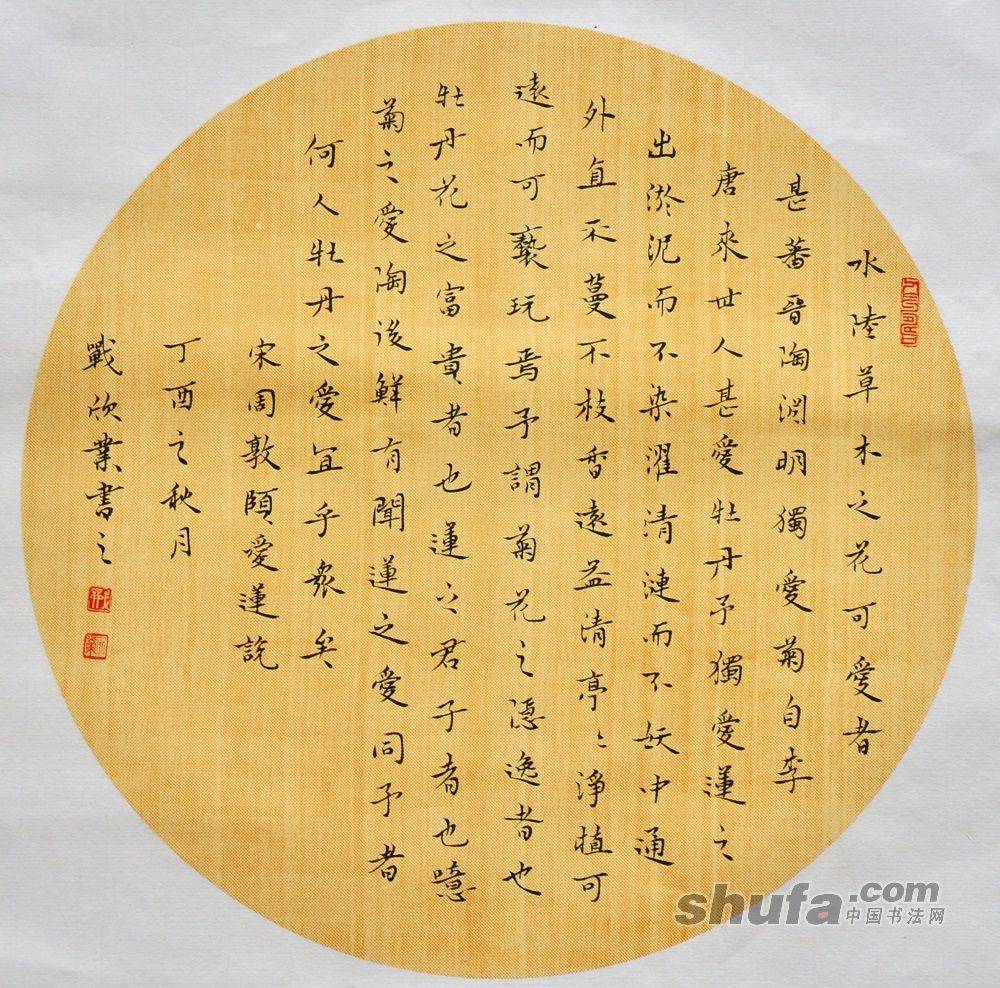 水陸草木之花可愛者
甚蕃晉陶淵明獨愛菊自李
唐來世人甚愛牡丹予獨愛蓮之
出淤泥而不染濯清漣而不妖中通
外直不蔓不枝香遠益清亭〻淨植可
遠而可褻玩焉予謂菊花之隱逸者也
牡丹花之富貴者也蓮之君子者也噫
菊之愛陶後鮮有聞蓮之愛同予者
何人牡丹之愛宜乎眾矣
宋周敦頤愛蓮說
丁酉之秋月
戰欣業書之
shufa.com
中国书法网